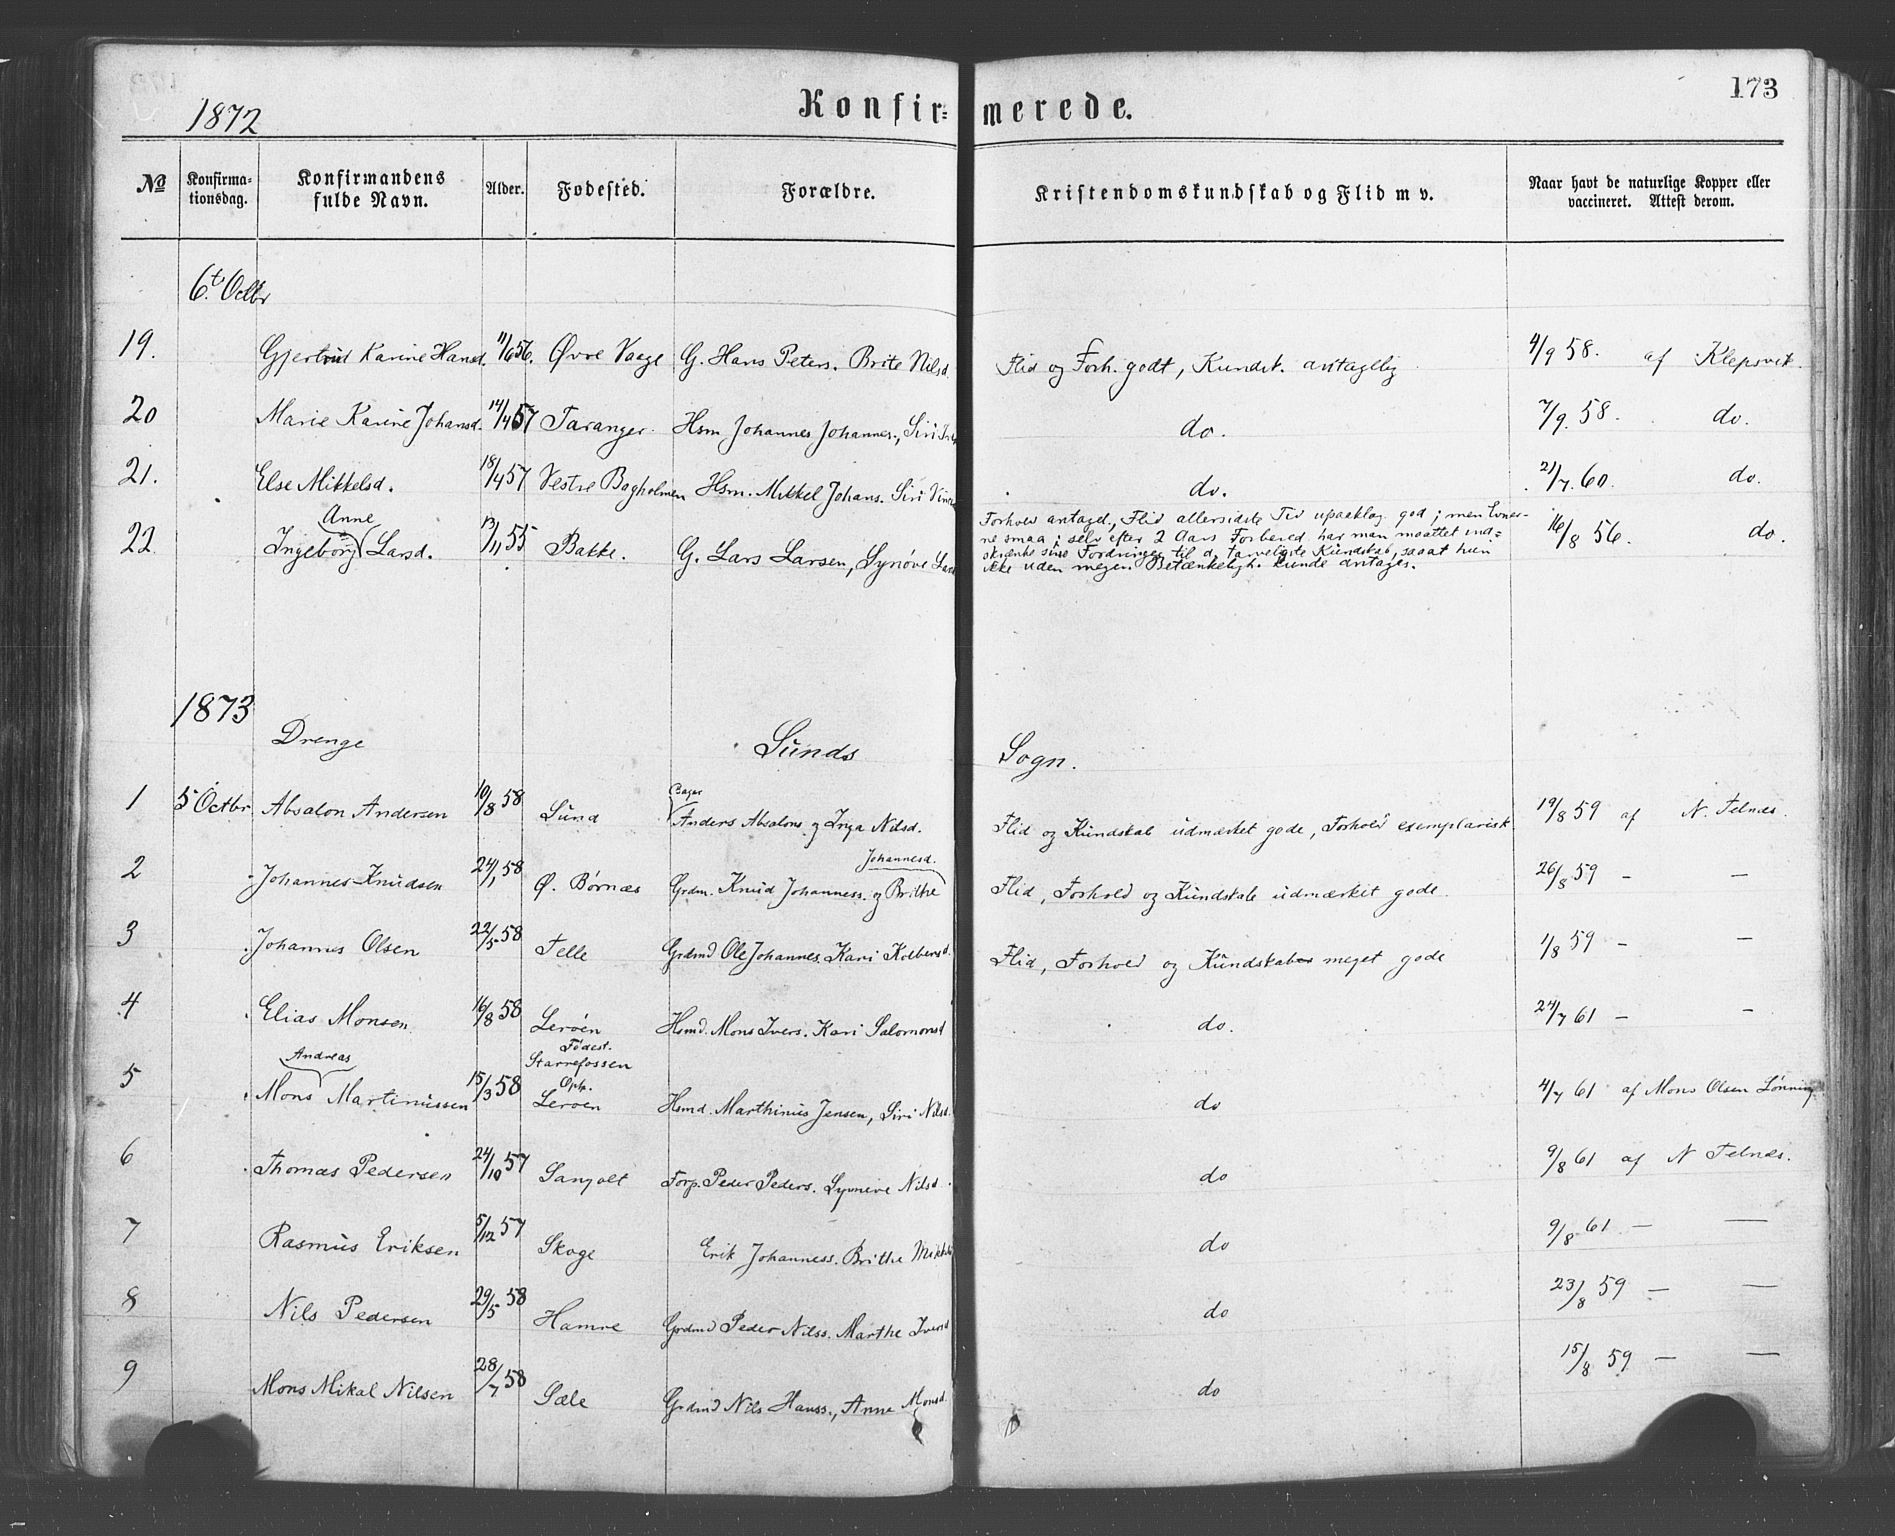 173
1872 Konfir= merede.
No Konfirma-tionsdag. Konfirmandens fulde Navn. Alder. Fødested. Forældre. Kristendomskundskab og Flid m v. Naar havt de naturlige Kopper eller vaccineret. Attest derom.
6t. Octbr
19. Gjertrud Karine Hansd. 11/6 56. Øvre Vaage G. Hans Peters. Brite Nilsd. Flid og Forh. godt, Kundsk. antagelig 4/9 58. af Klepsvik.
20 Marie Karine Johansd. 14/4 57 Taranger. Hsm Johannes Johannes., Siri do. 7/9. 58. do.
21. Else Mikkelsd. 18/4 57 Vestre Bagholmen Hsm. Mikkel Johans. Siri do. 21/7. 60. do.
22. Ingeborg Anne Larsd. 13/11 55 Bakke. G. Lars Larsen, Synøve Forhold antagel., Flid allersidste Tid upaaklag. god; men Evner-
ne smaa; selv efter 2 Aars Forbered. har man maattet ind=
skrænke sine Fordringer til d. tarveligste Kundskab, saaat hun
ikke uden megen Betænkeligh. kunde antages. 16/8 56. do.
1873
Drenge Sunds Sogn.
1 5 Octbr Absalon Andersen 10/8 58 Sund Anders Absalons. og Inga Nilsd. Flid og Kundskab udmærket gode, Forhold exemplarisk 19/8 59 af N. Telnes.
2 Johannes Knudsen 24/1 58 Ø. Børnæs Grdm. Knud Johanness. og Brithe Johannesd. Flid, Forhold og Kundskab udmærket gode 26/8 59 — —
3 Johannes Olsen 22/5 58 Telle Grdmd Ole Johannes. Kari Kolbensd. Flid, Forhold og Kundskaber meget gode 1/8 59 — —
4 Elias Monsen 16/8 58 Lerøen Hsmd. Mons Ivers. Kari Salomonsd do. 24/7 61 — —
5 Mons Andreas Martinussen 15/3 58 Fødest. Starrefossen Oph. Lerøen Hsmd. Marthinus Jensen, Siri Nilsd. do 4/7 61 af Mons Olsen Lønning
6 Thomas Pedersen 24/10 57 Sangolt Forp. Peder Peders. Synneve Nilsd. do 9/8 61 af N Telnes.
7 Rasmus Eriksen 5/12 57 Skoge Erik Johanness. Brithe do 9/8 61 — —
8 Nils Pedersen 29/5 58 Hamre Grdmd Peder Nilss. Marthe Iversd do 23/8 59 — —
9 Mons Mikal Nilsen 28/7 58 Sæle Grdmd Nils Hanss., Anne Monsd. do 15/8 59 — —